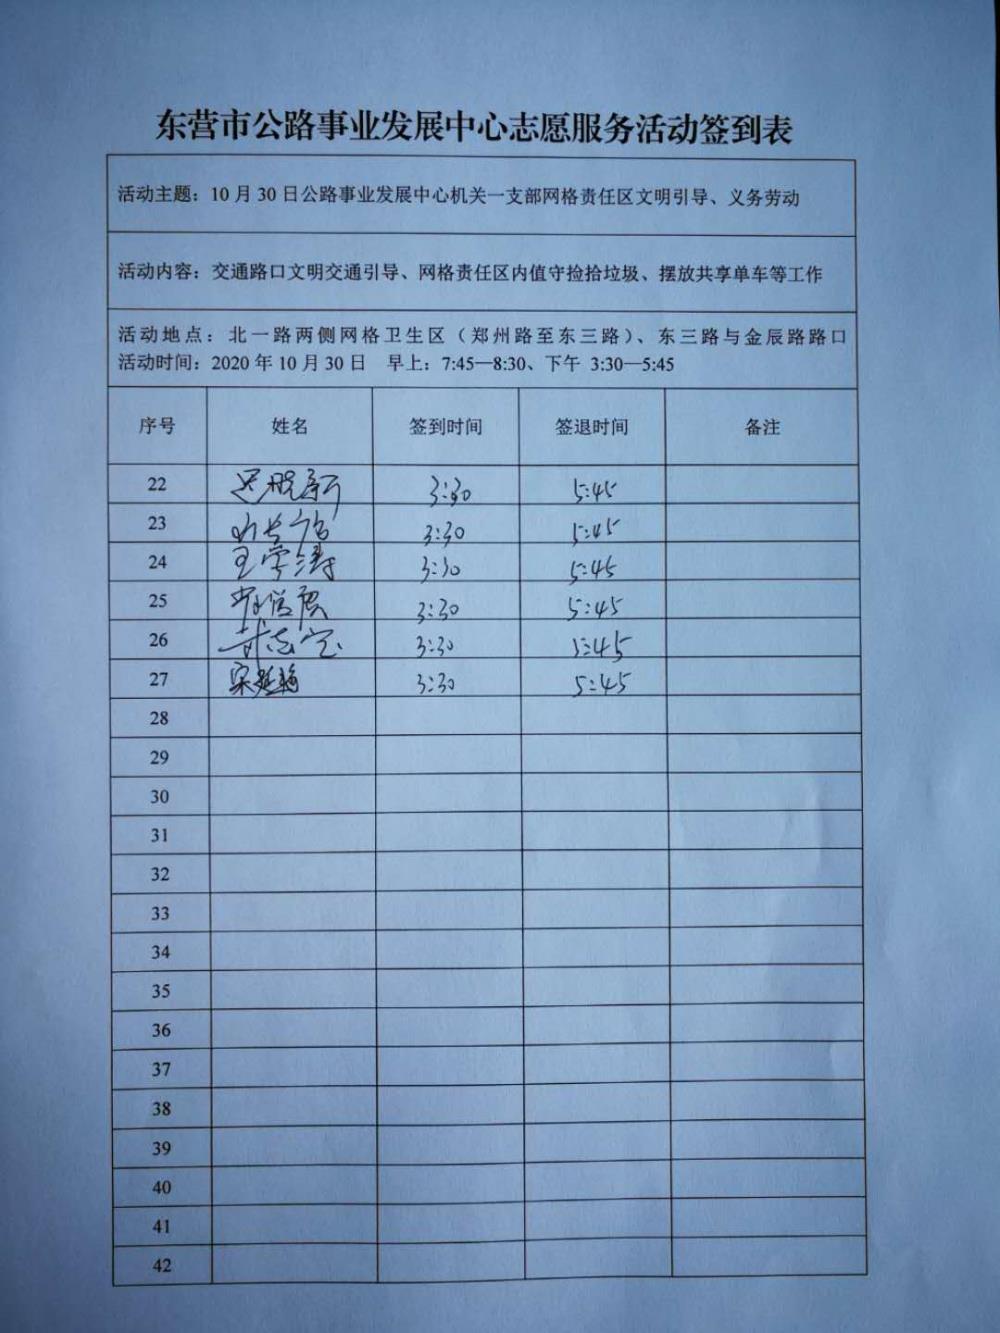 东营市公路事业发展中心志愿服务活动签到表
活动主题：10月30日公路事业发展中心机关一支部网格责任区文明引导、义务劳动
活动内容：交通路口文明交通引导、网格责任区内值守捡拾垃圾、摆放共享单车等工作
活动地点：北一路两侧网格卫生区（郑州路至东三路）、东三路与金辰路路口
活动时间：2020年10月30日 早上：7:45—8:30、下午 3:30—5:45
序号 姓名 签到时间 签退时间 备注
22 3:30 5:45
23 3:30 5:45
24 王学涛 3:30 5:45
25 3:30 5:45
26 3:30 5:45
27 3:30 5:45
28
29
30
31
32
33
34
35
36
37
38
39
40
41
42